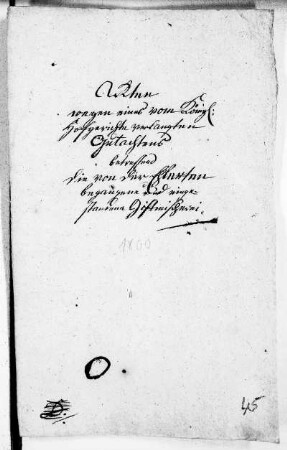 Akten
wegen eines vom Königl:
Hofgerichte verlangten
Gutachtens
betreffend
die von der Ebersten
begangene und einge-
standene Giftmischerei.
1800
O
45